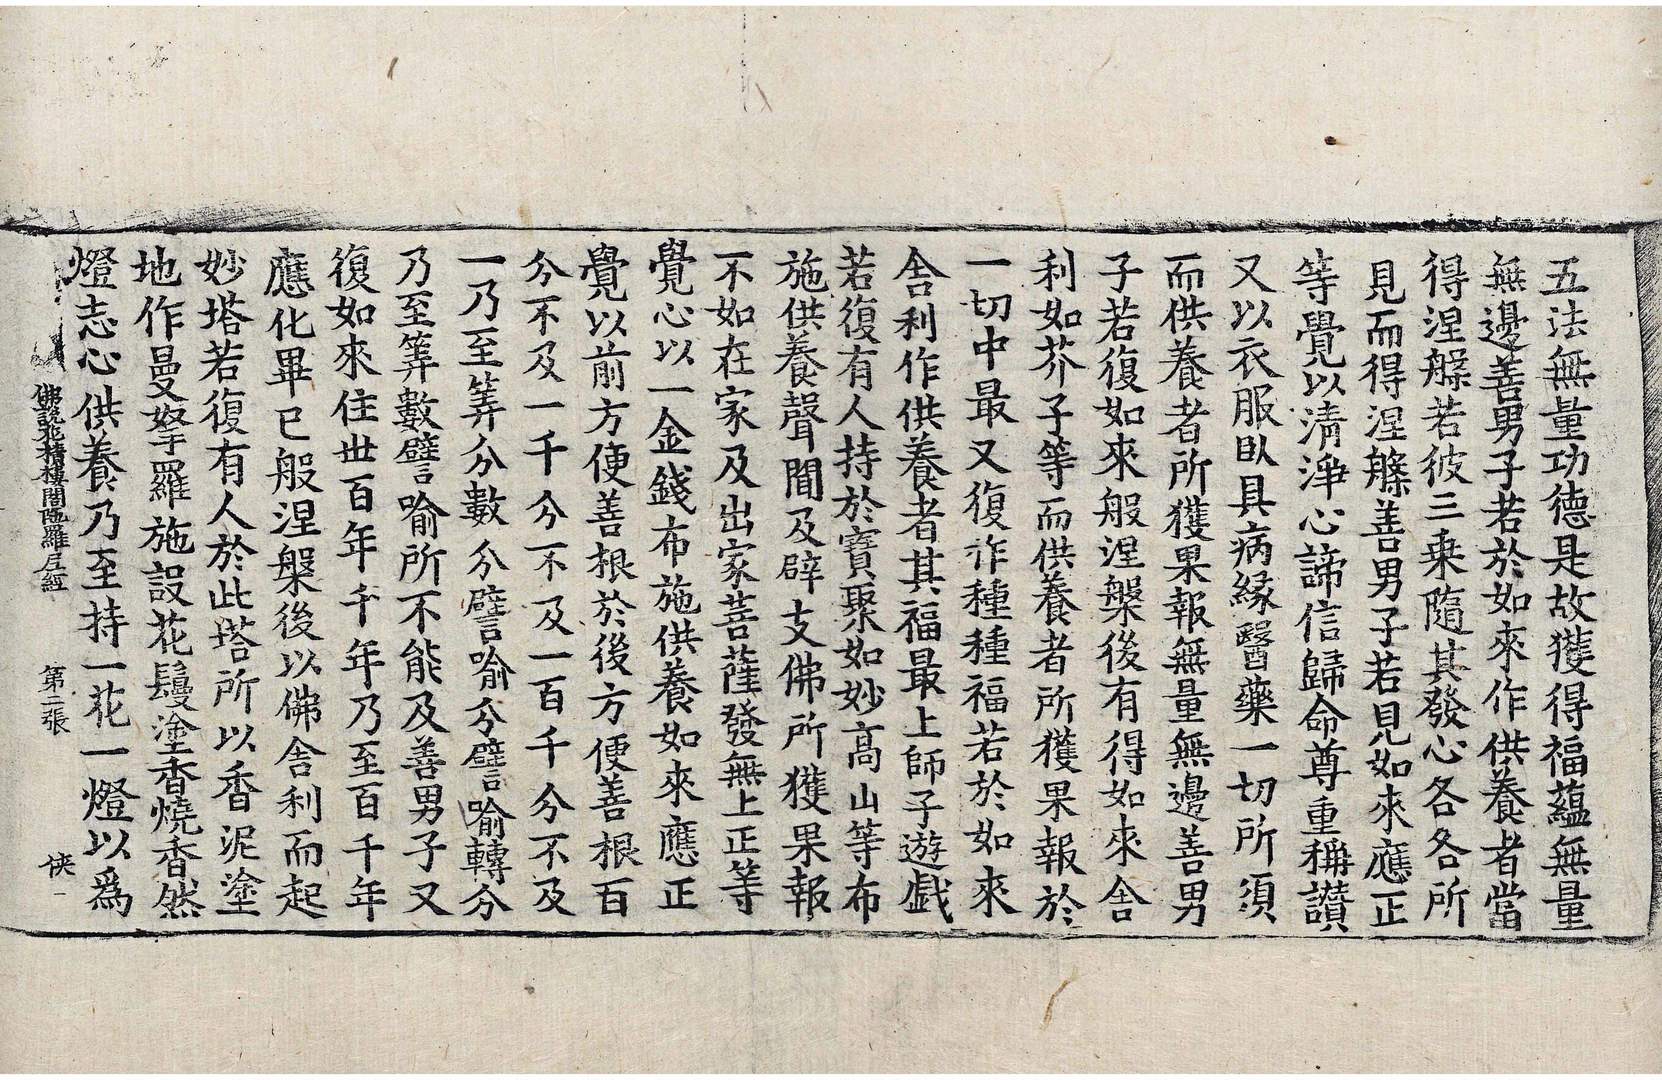 五法無量功德是故獲得福蘊無量
無邊善男子若於如來作供養者當
得涅槃若彼三乘隨其發心各各所
見而得涅槃善男子若見如來應正
等覺以清淨心諦信歸命尊重稱讚
又以衣服臥具病緣醫藥一切所須
而供養者所獲果報無量無邊善男
子若復如來般涅槃後有得如來舍
利如芥子等而供養者所獲果報於
一切中最又復作種種福若於如來
舍利作供養者其福最上師子遊戲
若復有人持於寶聚如妙高山等布
施供養聲聞及辟支佛所獲果報
不如在家及出家菩薩發無上正等
覺心以一金錢布施供養如來應正
覺以前方便善根於後方便善根百
分不及一千分不及一百千分不及
一乃至筭分數分譬喻分譬喻轉分
乃至筭數譬喻所不能及善男子又
復如來住世百年千年乃至百千年
應化畢已般涅槃後以佛舍利而起
妙塔若復有人於此塔所以香泥塗
地作曼拏羅施設花鬘塗香燒香然
燈志心供養乃至持一花一燈以為
佛說花積樓閣陁羅尼經 第二張 俠